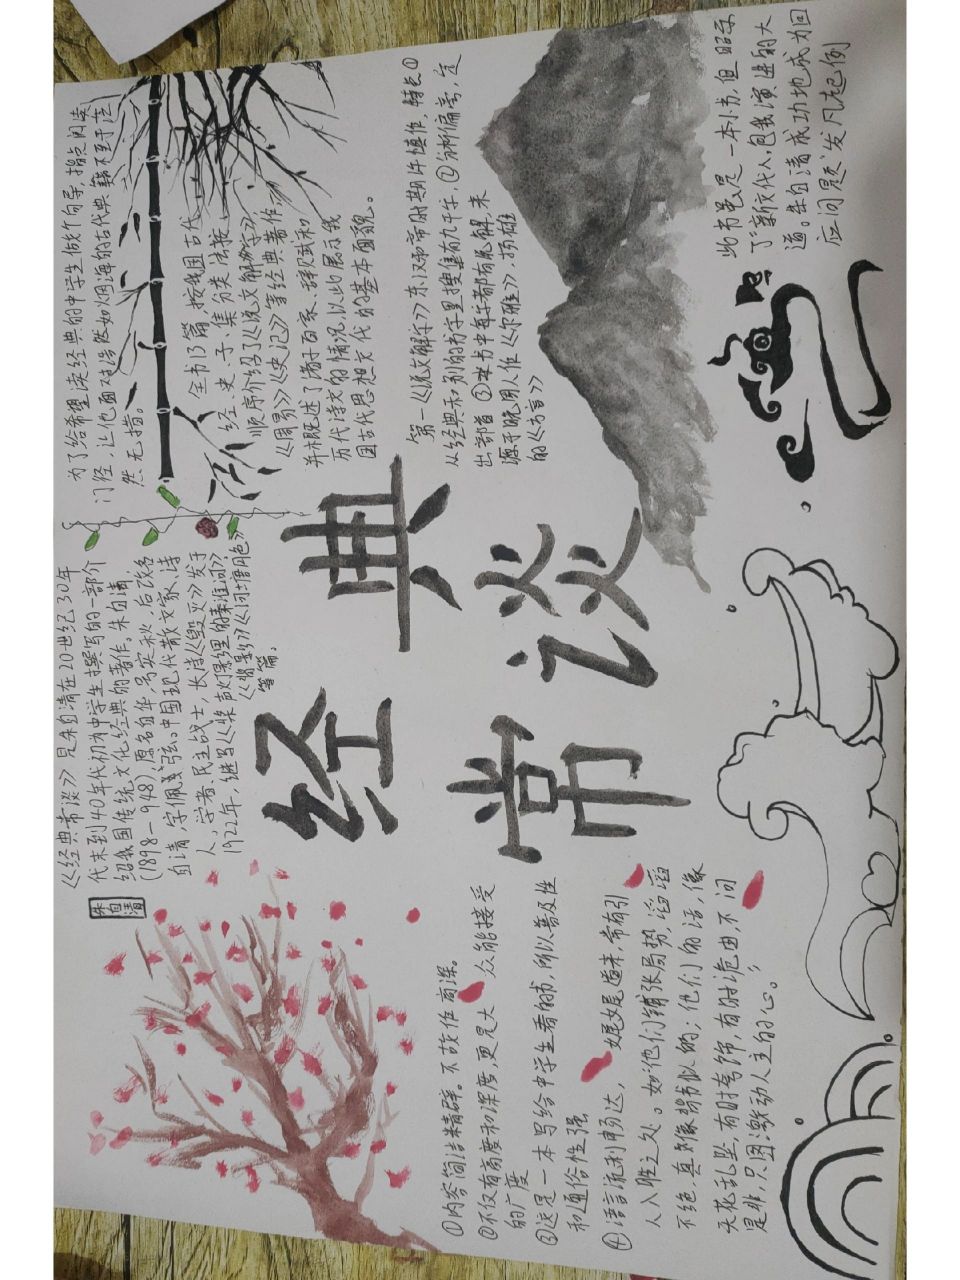 经典
常谈
《经典常谈》是朱自清在20世纪30年
代末到40年代初为中学生撰写的一部介
绍我国传统文化经典的著作。朱自清
(1898-1948)原名自华,号实秋,后改名
自清,字佩弦。中国现代散文家、诗
人,学者民主战士,长诗《毁灭》发于
1922年,继写《桨声灯影里的秦淮河》,
《背影》《荷塘月色》
等篇。
朱自清
为了给希望读经典的中学生做个向导,指点阅读
门径,让他面对浩然如烟海的古代典籍不至于茫
然无措。
全书13篇,按我国古代
经、史、子、集分类法按
顺序介绍了《说文解字》
《周易》《史记》等经典著作,
并概述了诸子百家、辞赋和
历代诗文的情况,以此展示我
国古代思想文化的基本面貌。
第一《说文解字》东汉和帝时期许慎作,特色①
从经典和别的字里搜集有九千字,②分析偏旁,定
出部首③那书中每字都有配解,来
源于晚周人作《尔雅》,扬雄
的《方言》
此书虽是一本小书,但昭示
了新文代人,自我演进的大
道。朱自清成功地成为回
应问题发凡起例
①内容简洁精辟。不故作高深。
②不仅有高度和深度,更是大众能接受
的广度
③这是一本写给中学生看的书,所以普及性
和通俗性强
④语言流利畅达,娓娓道来常有引
人入胜之处。如他们铺张局势,滔滔
不绝,真像背书似的;他们的话,像
天花乱坠,有时夸饰,有时诡曲,不问
是非,只图激动人主的心。”